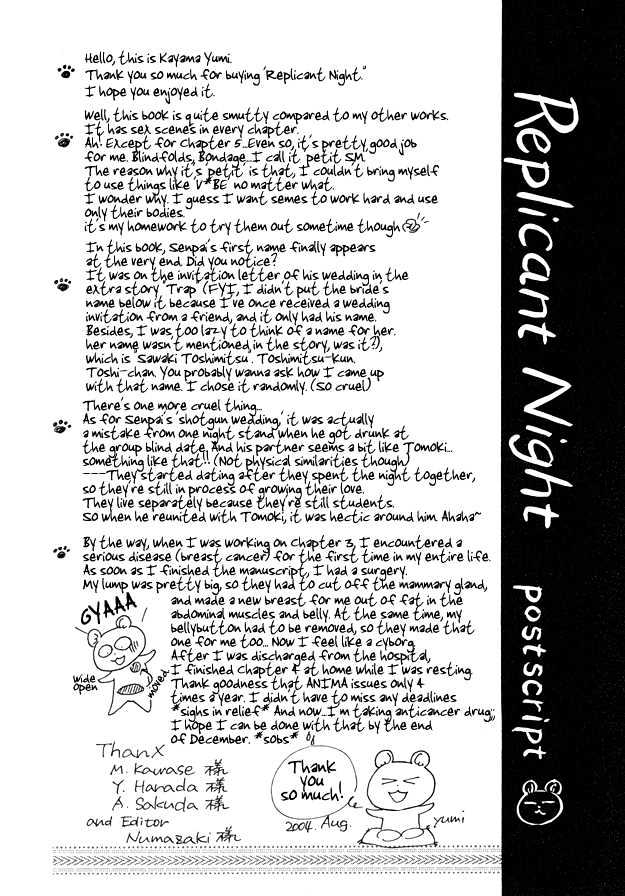 Replicant Night postscript
Hello, this is Kayama Yumi.
Thank you so much for buying "Replicant Night."
I hope you enjoyed it.
Well, this book is quite smutty compared to my other works.
It has sex scenes in every chapter.
Ah! Except for chapter 5...Even so, it's pretty good job
for me. Blindfolds, Bondage...I call it 'petit SM.'
The reason why it's 'petit' is that, I couldn't bring myself
to use things like 'V*BE' no matter what.
I wonder why. I guess I want semes to work hard and use
only their bodies.
it's my homework to try them out sometime though
In this book, Senpai's first name finally appears
at the very end. Did you notice?
It was on the invitation letter of his wedding in the
extra story 'Trap' (FYI, I didn't put the bride's
name below it because I've once received a wedding
invitation from a friend, and it only had his name.
Besides, I was too lazy to think of a name for her.
her name wasn't mentioned in the story, was it?),
which is 'Sawaki Toshimitsu'. Toshimitsu-kun.
Toshi-chan. You probably wanna ask how I came up
with that name. I chose it randomly. (So cruel)
There's one more cruel thing...
As for Senpai's 'shotgun wedding,' it was actually
a mistake from one night stand when he got drunk at
the group blind date. And his partner seems a bit like Tomoki...
something like that!! (Not physical similarities though)
----They started dating after they spent the night together,
so they're still in process of growing their love.
They live separately because they're still students.
So when he reunited with Tomoki, it was hectic around him. Ahaha~
By the way, when I was working on chapter 3, I encountered a
serious disease (breast cancer) for the first time in my entire life.
As soon as I finished the manuscript, I had a surgery.
My lump was pretty big, so they had to cut off the mammary gland,
and made a new breast for me out of fat in the
abdominal muscles and belly. At the same time, my
bellybutton had to be removed, so they made that
one for me too... Now I feel like a cyborg.
After I was discharged from the hospital,
I finished chapter 4 at home while I was resting.
Thank goodness that ANIMA issues only 4
times a year. I didn't have to miss any deadlines
*sighs in relief* And now...I'm taking anticancer drug;;
I hope I can be done with that by the end
of December. *sobs*
GYAAA
wide
open
moved
ThanX
M. Kawase 様
Y. Harada 様
A. Sakuda 様
and Editor
Numazaki 様
Thank
you
so much!
2004. Aug.
yumi